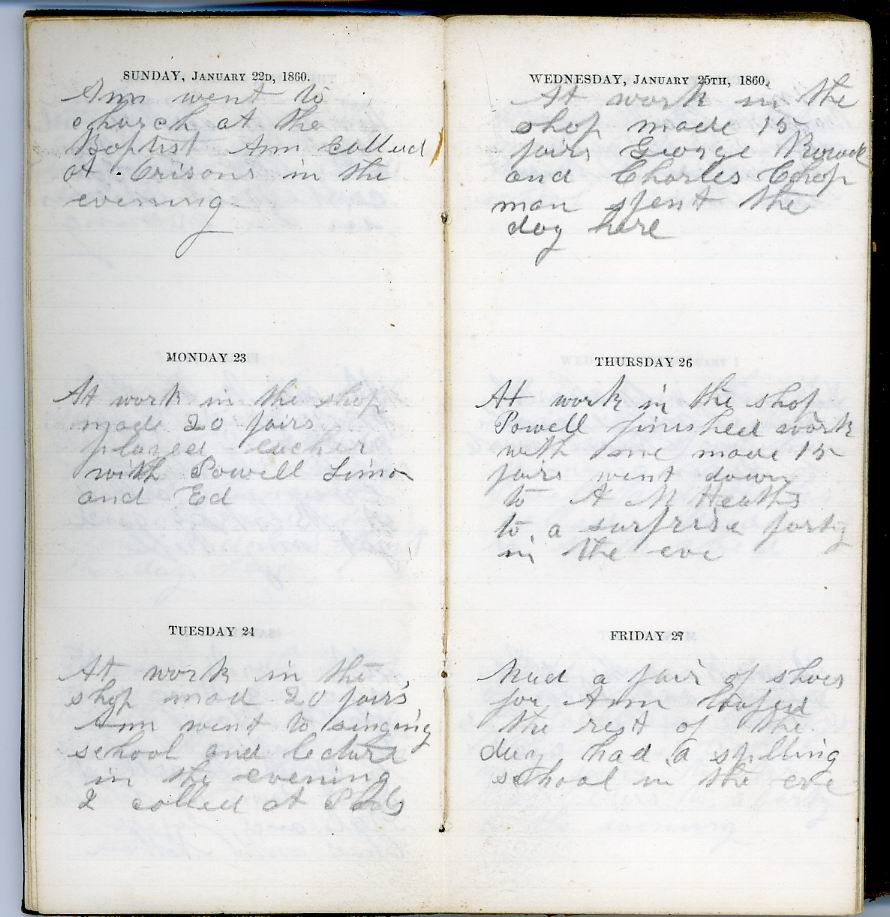 SUNDAY, JANUARY 22D, 1860.
Ann went to
church at the
Baptist Ann called
at Crisons in the
evening
MONDAY 23
At work in the shop
made 20 pairs
played eucher
with Powell Simon
and Ed
TUESDAY 24
At work in the
shop mad 20 pairs
Ann went to singing
school and lecture
in the evening
I called at
WEDNESDAY, JANUARY 25TH, 1860.
At work in the
shop made 15
pairs George
and Charles Chap
man spent the
day here
THURSDAY 26
At work in the shop
Powell finished work
with me made 15
pairs went down
to A M Heaths
to a surprise party
in the eve
FRIDAY 27
Mad a pair of shoes
for Ann loafed
the rest of the
day had a spilling
school in the eve